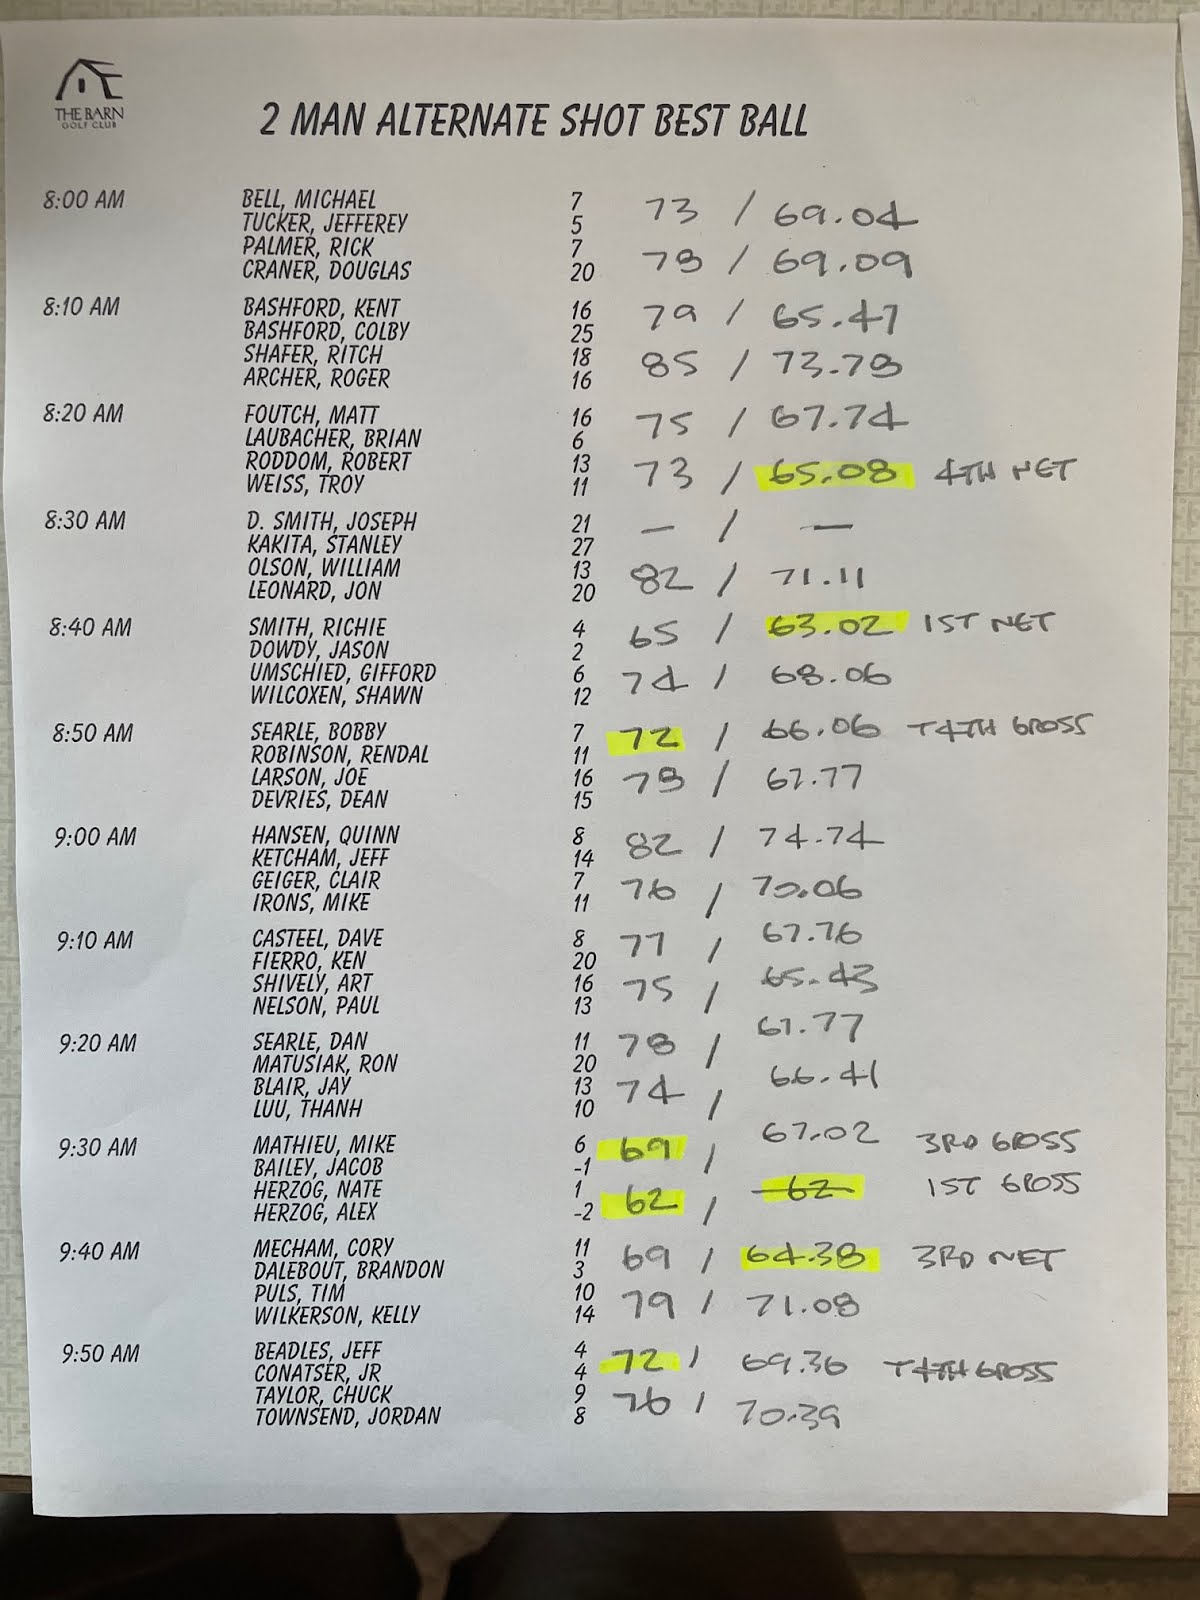 THE BARN
GOLF CLUB
2 MAN ALTERNATE SHOT BEST BALL
8:00 AM BELL, MICHAEL 7 73 / 69.04
TUCKER, JEFFEREY 5
PALMER, RICK 7 78 / 69.09
CRANER, DOUGLAS 20
8:10 AM BASHFORD, KENT 16 79 / 65.47
BASHFORD, COLBY 25
SHAFER, RITCH 18 85 / 73.78
ARCHER, ROGER 16
8:20 AM FOUTCH, MATT 16 75 / 67.74
LAUBACHER, BRIAN 6
RODDOM, ROBERT 13 73 / 65.08 4TH NET
WEISS, TROY 11
8:30 AM D. SMITH, JOSEPH 21 — / —
KAKITA, STANLEY 27
OLSON, WILLIAM 13 82 / 71.11
LEONARD, JON 20
8:40 AM SMITH, RICHIE 4 65 / 63.02 1ST NET
DOWDY, JASON 2
UMSCHIED, GIFFORD 6 74 / 68.06
WILCOXEN, SHAWN 12
8:50 AM SEARLE, BOBBY 7 72 / 66.06 T4TH GROSS
ROBINSON, RENDAL 11
LARSON, JOE 16 78 / 67.77
DEVRIES, DEAN 15
9:00 AM HANSEN, QUINN 8 82 / 74.74
KETCHAM, JEFF 14
GEIGER, CLAIR 7 76 / 70.06
IRONS, MIKE 11
9:10 AM CASTEEL, DAVE 8 77 / 67.76
FIERRO, KEN 20
SHIVELY, ART 16 75 / 65.43
NELSON, PAUL 13
9:20 AM SEARLE, DAN 11 78 / 67.77
MATUSIAK, RON 20
BLAIR, JAY 13 74 / 66.41
LUU, THANH 10
9:30 AM MATHIEU, MIKE 6 69 / 67.02 3RD GROSS
BAILEY, JACOB -1
HERZOG, NATE 1 62 / 62 1ST GROSS
HERZOG, ALEX -2
9:40 AM MECHAM, CORY 11 69 / 64.38 3RD NET
DALEBOUT, BRANDON 3
PULS, TIM 10 79 / 71.08
WILKERSON, KELLY 14
9:50 AM BEADLES, JEFF 4 72 / 69.36 T4TH GROSS
CONATSER, JR 4
TAYLOR, CHUCK 9 76 / 70.39
TOWNSEND, JORDAN 8